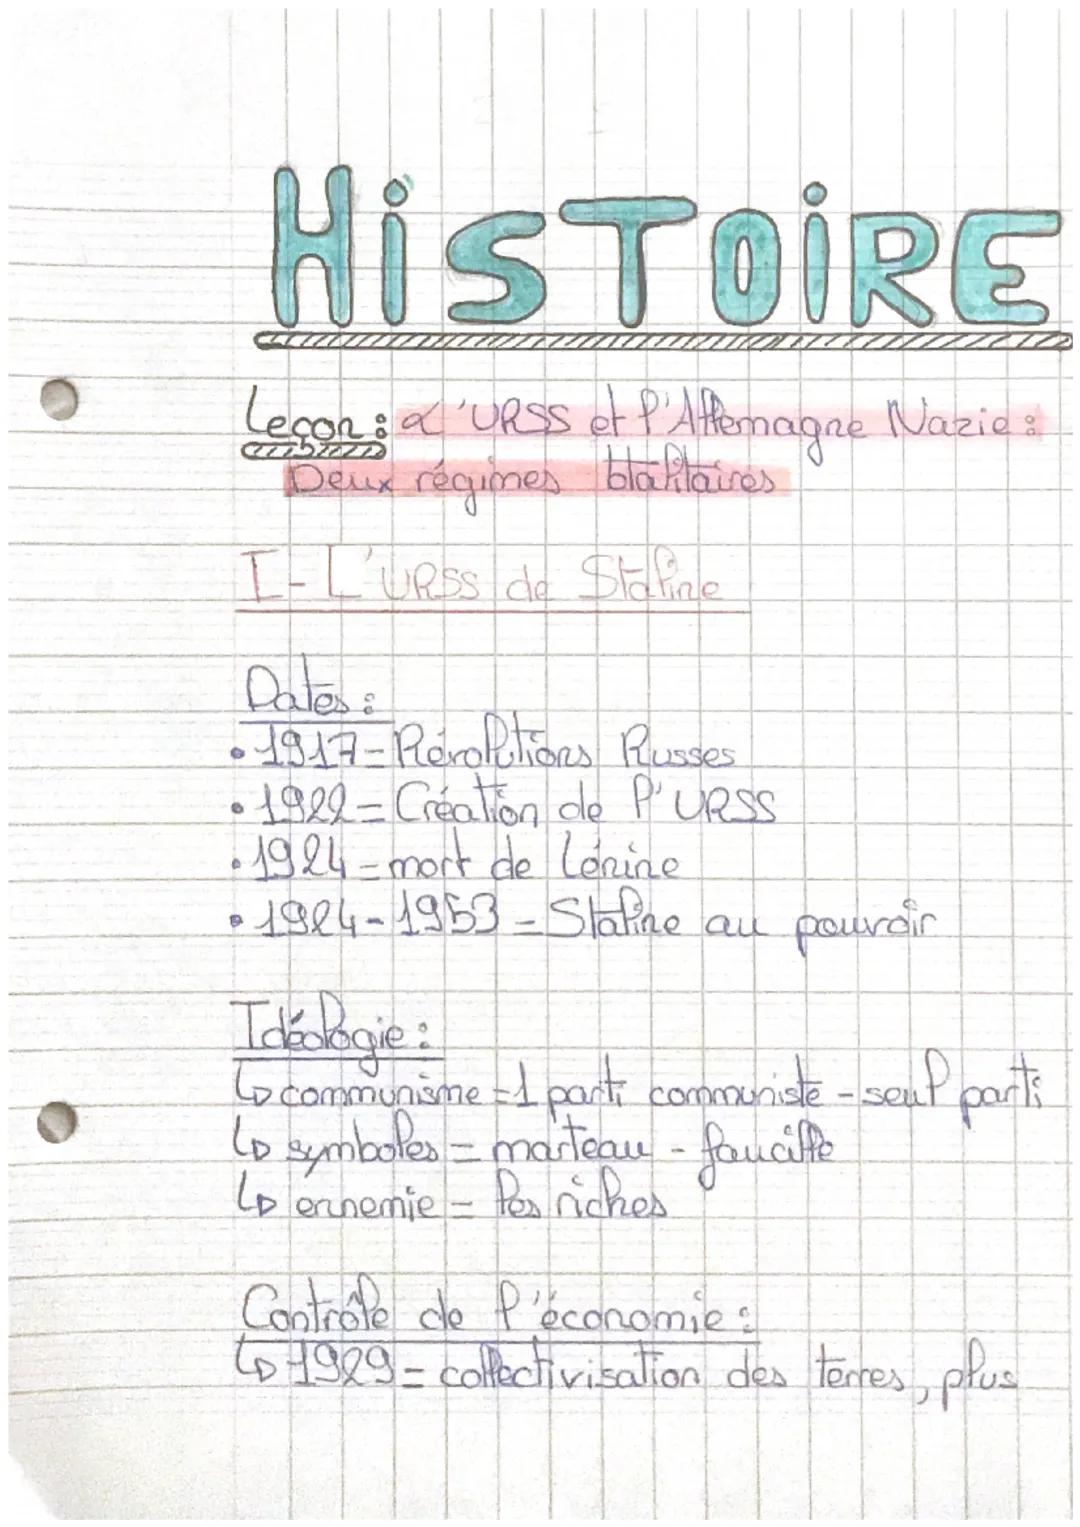 HiSTOiRE
Leçon : L'URSS et l'Allemagne Nazie :
Deux régimes totalitaires
I - L'URSS de Staline
Dates :
• 1917 = Révolutions Russes
• 1922 = Création de l'URSS
• 1924 = mort de Lénine
• 1924 - 1953 = Staline au pouvoir
Idéologie :
↳ communisme = 1 parti communiste - seul parti
↳ symboles = marteau - faucille
↳ ennemie = les riches
Contrôle de l'économie :
↳ 1929 = collectivisation des terres, plus